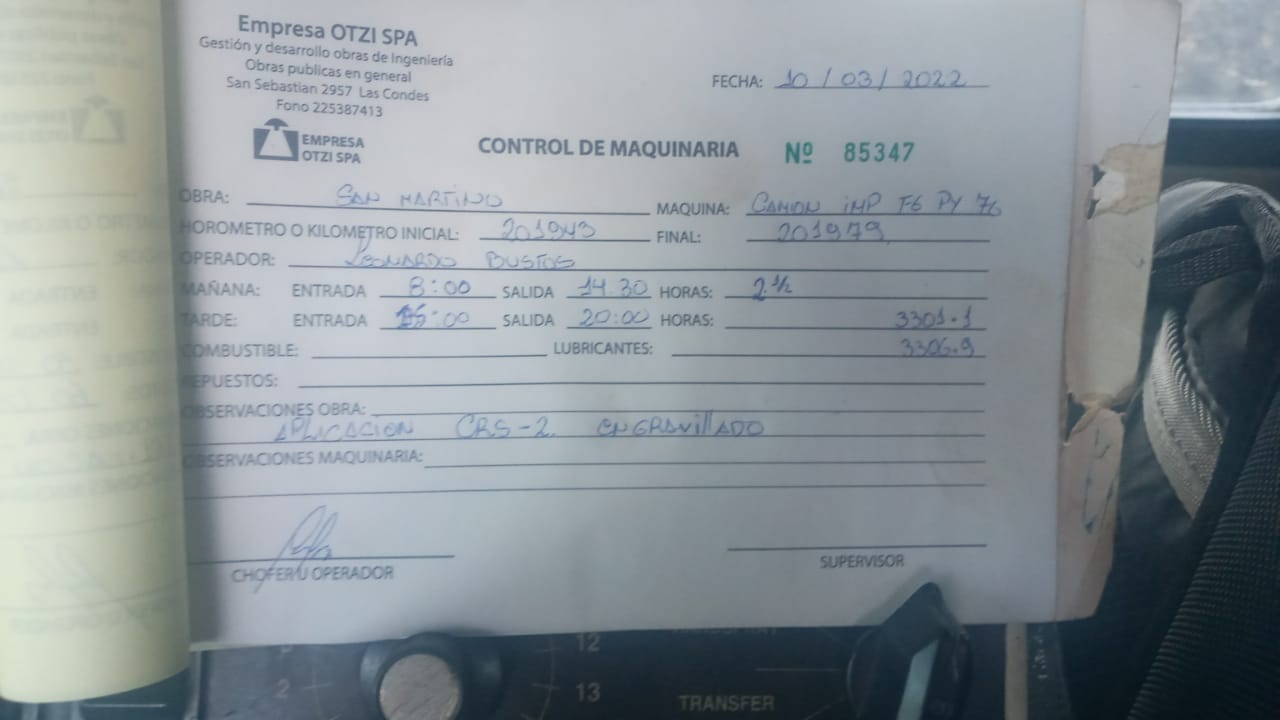 Empresa OTZI SPA
Gestión y desarrollo obras de Ingeniería
Obras publicas en general
San Sebastian 2957 Las Condes
Fono 225387413
FECHA: 10 / 03 / 2022
EMPRESA
OTZI SPA
CONTROL DE MAQUINARIA Nº 85347
OBRA: SAN MARTINO MAQUINA: CAMION IMP FG PY 76
HOROMETRO O KILOMETRO INICIAL: 201943 FINAL: 201979
OPERADOR: LEONARDO BUSTOS
MAÑANA: ENTRADA 8:00 SALIDA 14.30 HORAS: 2.½
TARDE: ENTRADA 15:00 SALIDA 20:00 HORAS: 3301.1
COMBUSTIBLE: LUBRICANTES: 3306.9
REPUESTOS:
OBSERVACIONES OBRA:
APLICACION CRS-2. ENGRAVILLADO
OBSERVACIONES MAQUINARIA:
CHOFER U OPERADOR SUPERVISOR
12
2 13 TRANSFER